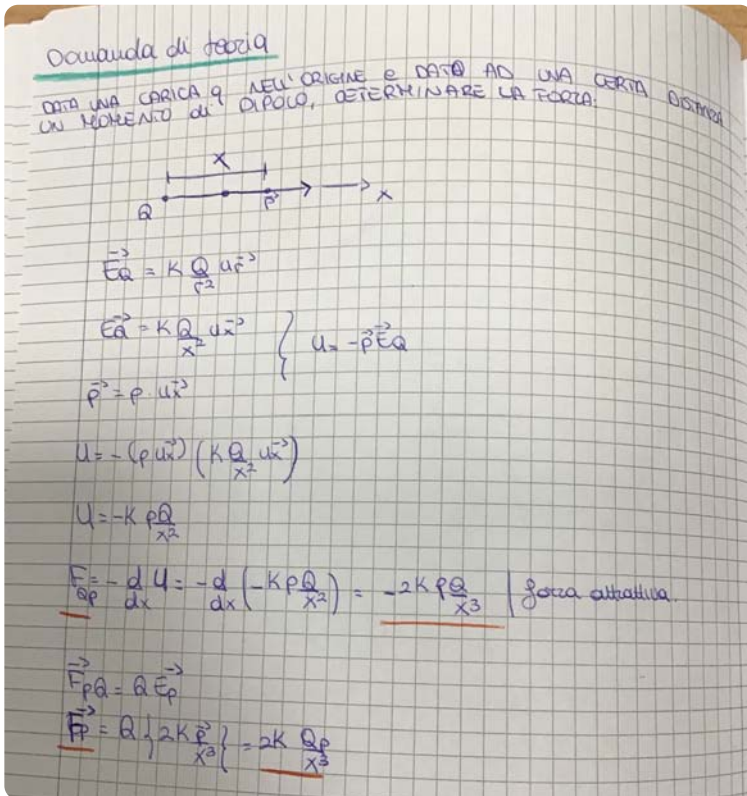 Domanda di teoria
DATA UNA CARICA q NELL'ORIGINE e DATO AD UNA CERTA DISTANZA
UN MOMENTO di DIPOLO, DETERMINARE LA FORZA.
x
Q p⃗ x
E⃗Q = K Q/r² u⃗r
E⃗Q = K Q/x² u⃗x } U = -p⃗ E⃗Q
p⃗ = p · u⃗x
U = -(p u⃗x) (K Q/x² u⃗x)
U = -K pQ/x²
F Qp = - d/dx U = - d/dx (-K p Q/x²) = -2K pQ/x³ | forza attrattiva.
F⃗pQ = Q E⃗p
F⃗p = Q {2K p⃗/x³} = 2K Qp/x³